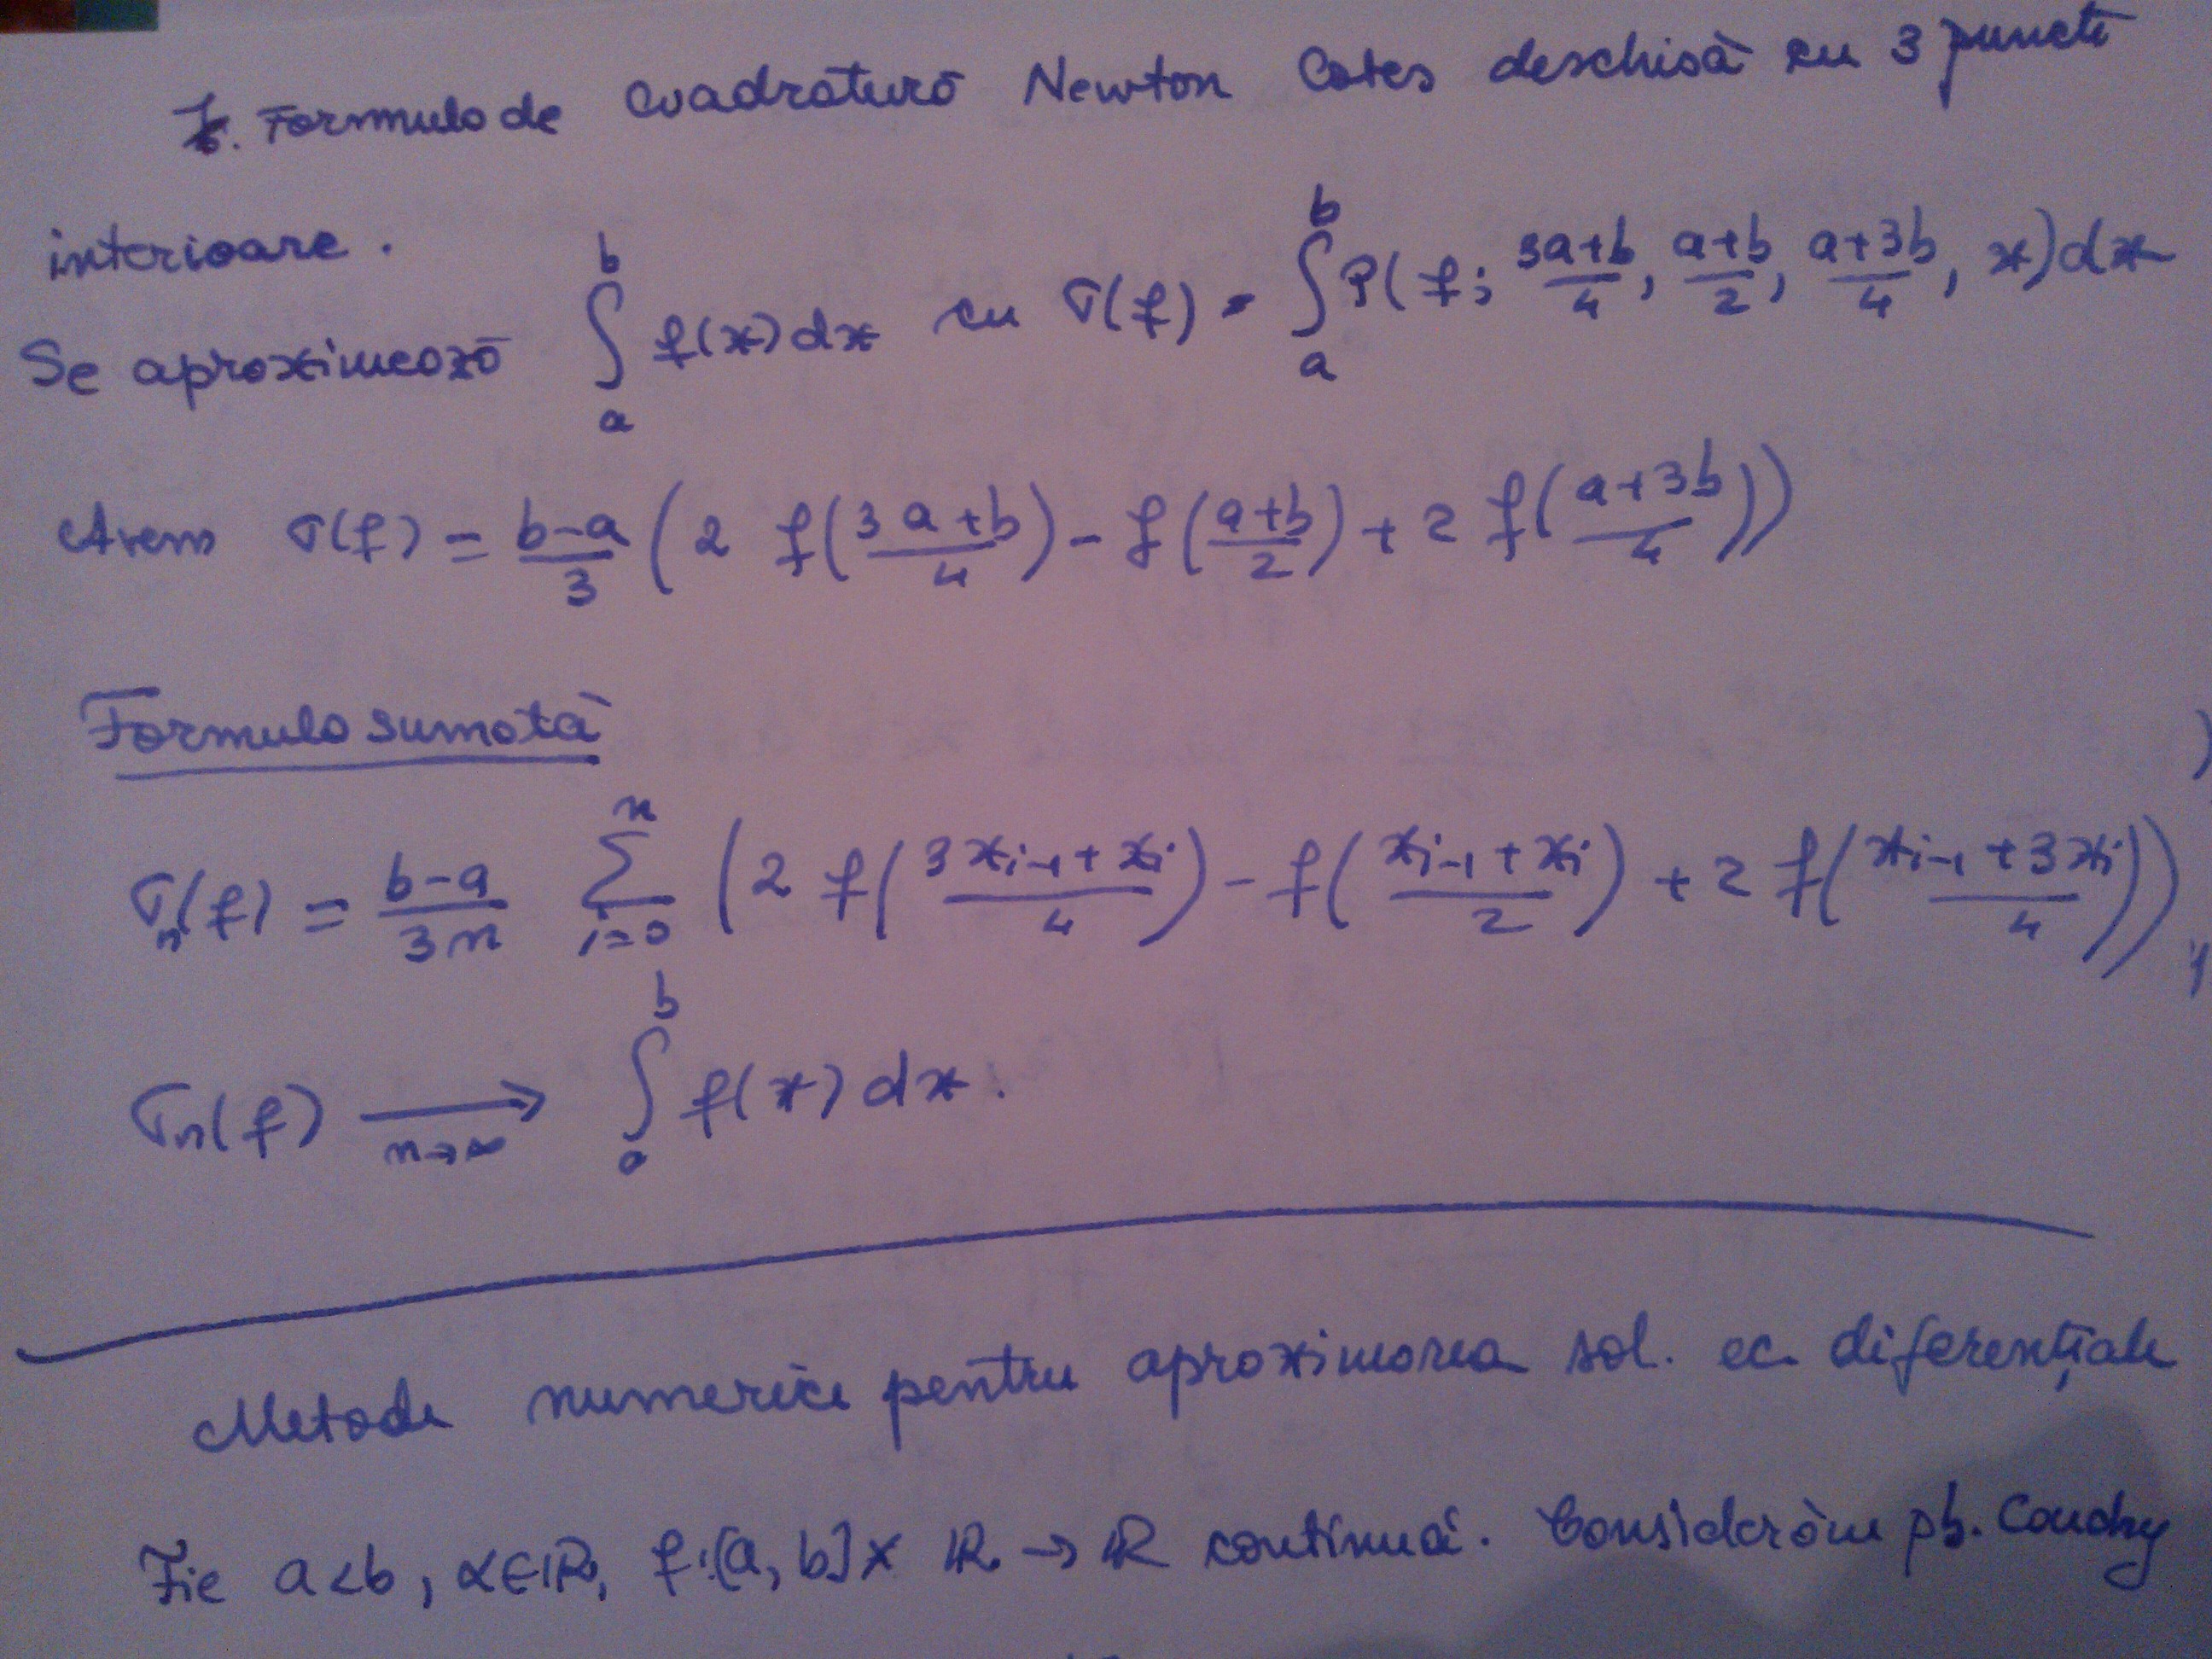 7. Formula de cuadratură Newton Cotes deschisă cu 3 puncte
interioare.
Se aproximează ∫_a^b f(x)dx cu σ(f) = ∫_a^b P(f; (3a+b)/4, (a+b)/2, (a+3b)/4, x)dx
Avem σ(f) = (b-a)/3 (2 f((3a+b)/4) - f((a+b)/2) + 2 f((a+3b)/4))
Formula sumată
σ_n(f) = (b-a)/(3n) ∑_{i=0}^n (2 f((3x_{i-1}+x_i)/4) - f((x_{i-1}+x_i)/2) + 2 f((x_{i-1}+3x_i)/4))
σ_n(f) →_{n→∞} ∫_a^b f(x)dx.
Metode numerice pentru aproximarea sol. ec. diferențiale
Fie a<b, α∈ℝ, f:[a, b]× ℝ → ℝ continuă. Considerăm pb. Cauchy